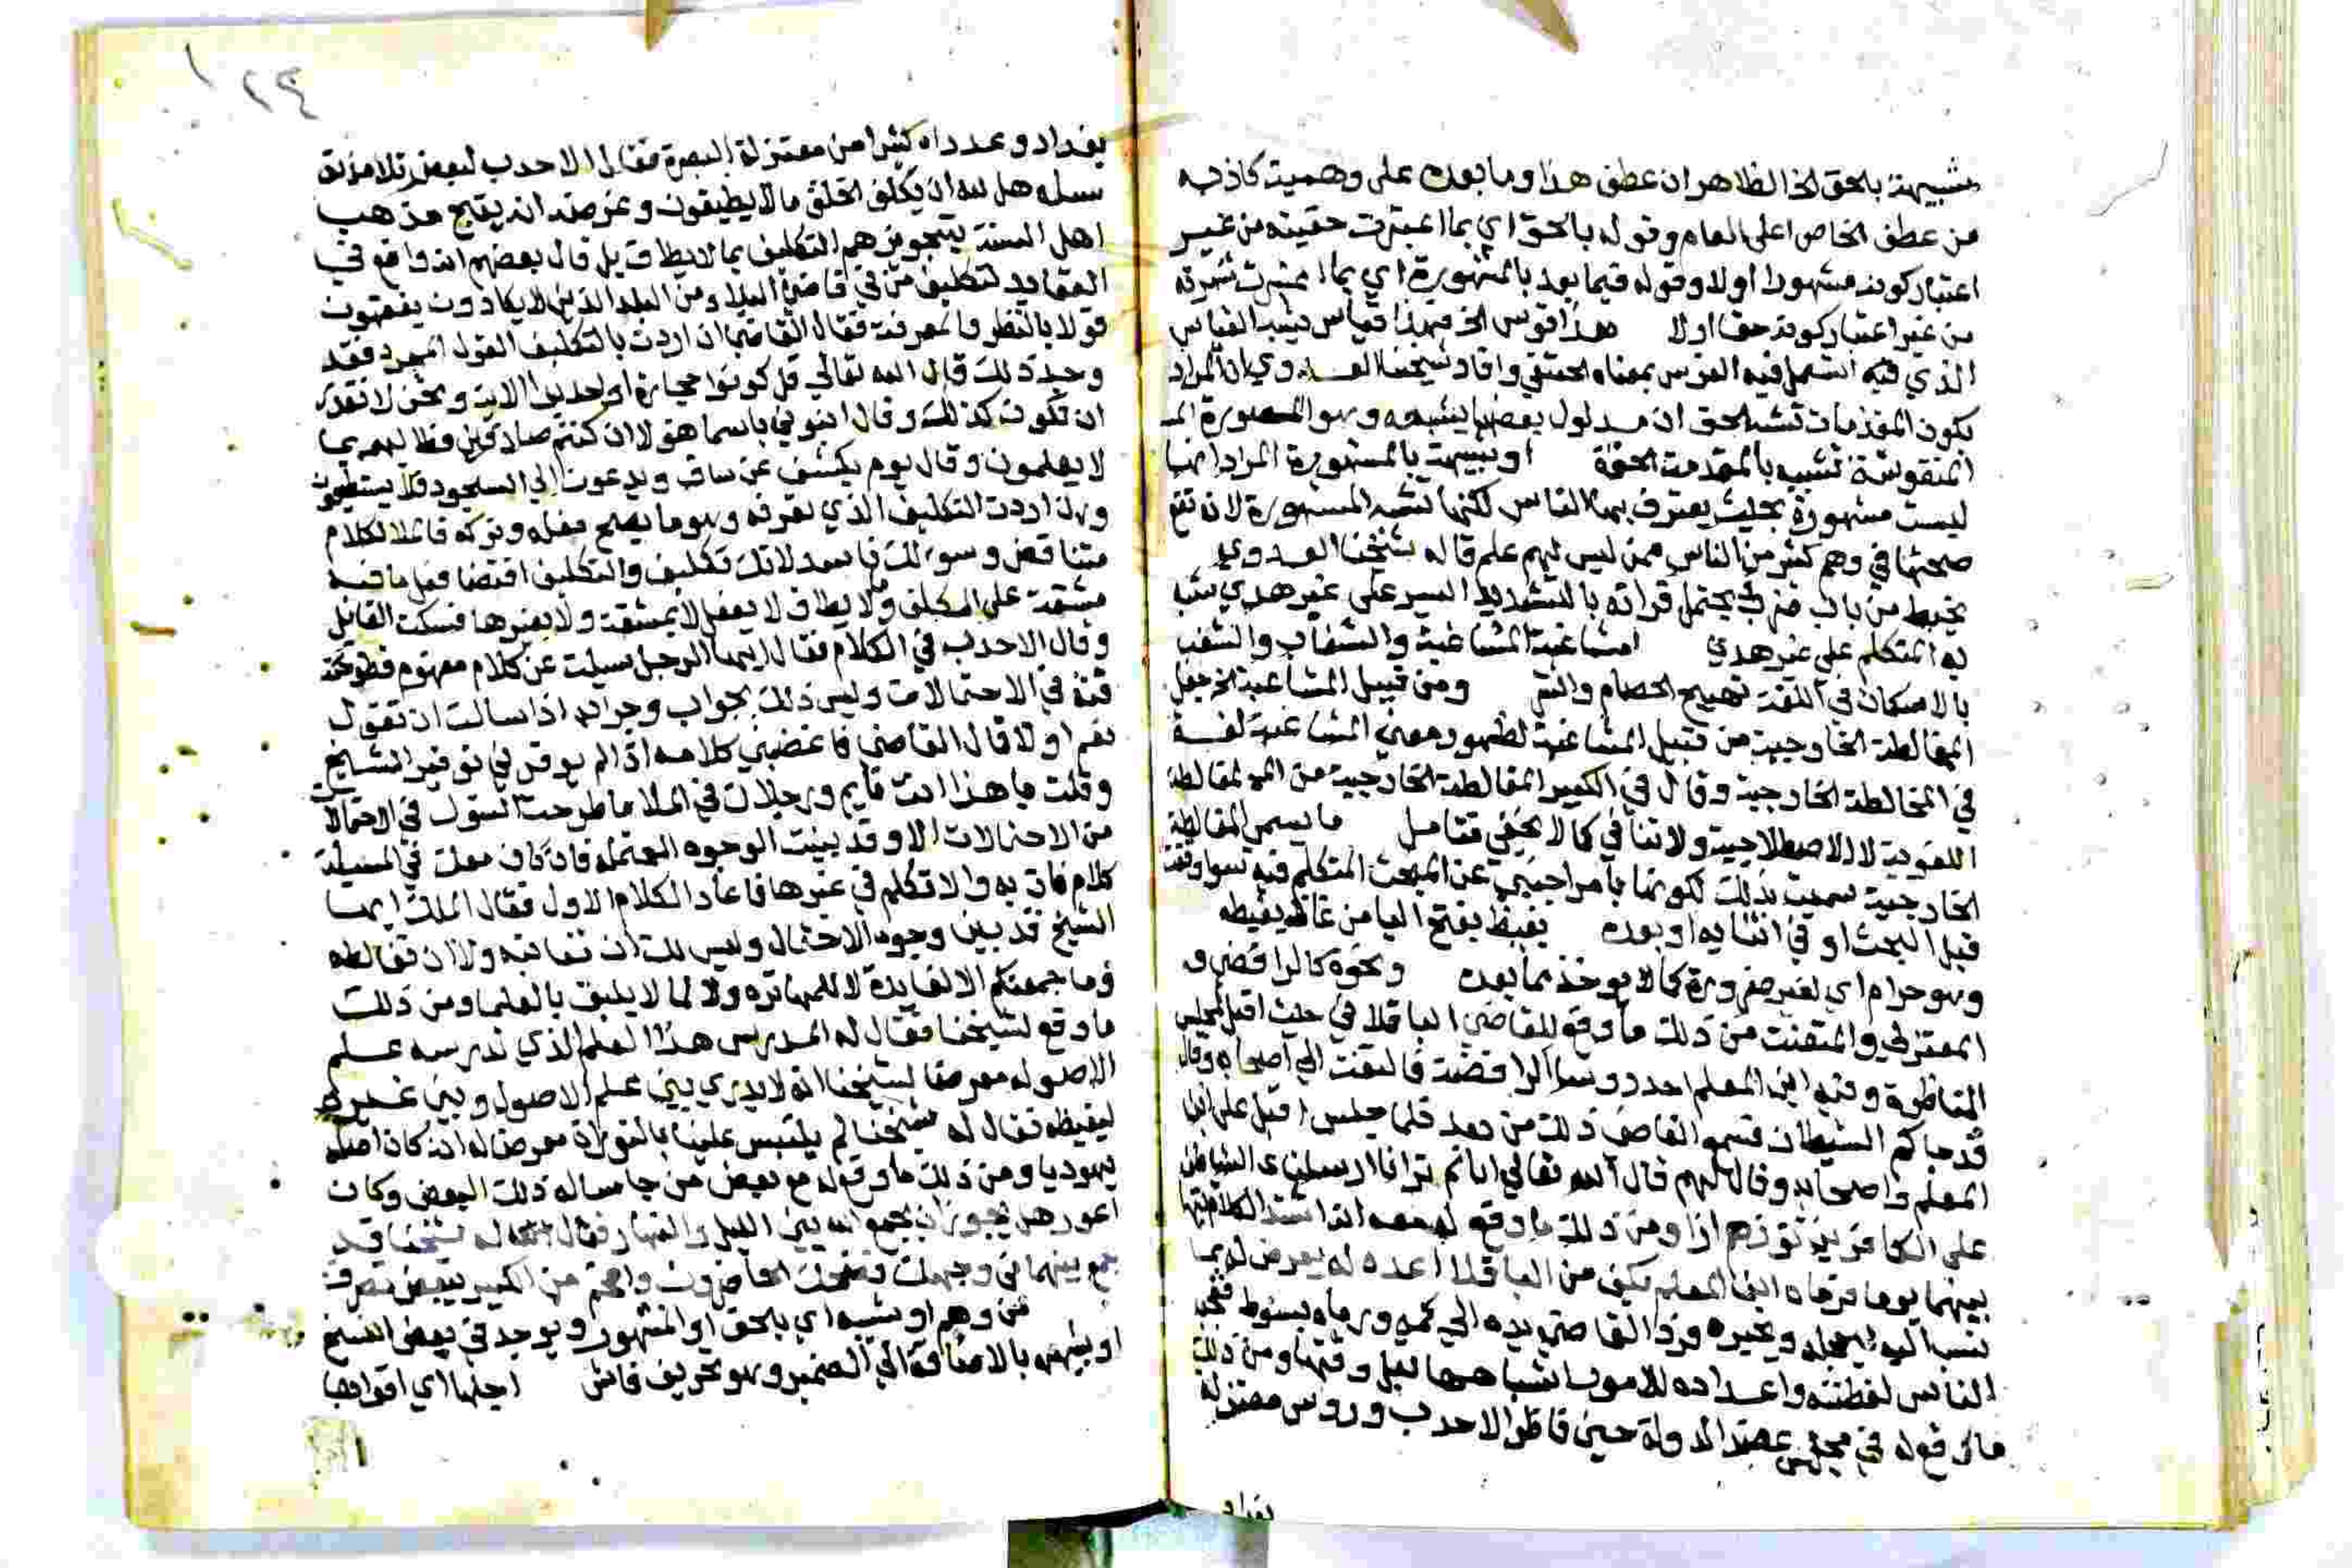 شبيهة بالحق الخ الظاهر ان عطف هذا وما بعده على وهمية كاذبة
من عطف الخاص على العام وقوله بالحق اي بما اعتبرت حقيته من غير
اعتبار كونه مشهورا اولا وقوله فيما بعد بالمشهورة اي بما اعتبرت شهرته
من غير اعتبار كونه حقا اولا هذا فرس الخ فهذا قياس يشبه القياس
الذي فيه استعمل فيه الفرس بمعناه الحقيقي وافاد شيخنا العدوي ان المراد
بكون المقدمات تشبه الحق ان مدلول بعضها يشبهه وهو الصورة
المنقوشة تشبيه بالمقدمة الحقة او شبيهة بالمشهورة المراد انها
ليست مشهورة بحيث يعترف بها الناس لكنها تشبه المشهورة لان تقع
صحتها في وهم كثير من الناس ممن ليس لهم علم قاله شيخنا العدوي
يخبط من باب ضرب يحتمل قراته بالتشديد السير على غير هدي شبه
به المتكلم على غير هدي مشاغبة المشاغبة والشغاب والشغب
بالاسكان في اللغة تهييج الخصام والشر ومن قبيل المشاغبة الخ جعل
المغالطة الخارجية من قبيل المشاغبة لظهور معنى المشاغبة لغة
في المخالطة الخارجية وقال في الكبير المغالطة الخارجية من المغالطة
اللغوية لا الاصطلاحية ولا تنافي كما لا يخفي فتامل ما يسمى المغالطة
الخارجية سميت بذلك لكونها بامر اجنبي عن المبحث المتكلم فيه سوا وقعت
قبل البحث او في اثنايه او بعده يغيظ بفتح اليا من غاظه يغيظه
وهو حرام اي لغير ضرورة كما يوخذ مما بعده ونحوه كالرافضي و
المعتزلي والمتعنت من ذلك ما وقع للقاضي الباقلاني حيث اقبل لمجلس
المناظرة وفيه ابن المعلم احد روسا الرافضة فالتفت الي اصحابه وقال
قد جاكم الشيطان فسمع القاضي ذلك من بعد فلما جلس اقبل على ابن
المعلم واصحابه وقال لهم قال الله تعالي الم تر انا ارسلنا الشياطين
على الكافرين توزهم ازا ومن ذلك ما وقع له معه انه اشتد الكلام بينهما
بينهما يوما فرماه ابن المعلم بكف من الباقلا اعده له يعرض له بما
ينسب اليه ليخجله ويحيره فرد القاضي يده الي كمه ورماه بسوط فعجب
الناس لفطنته واعداده للامور اشباهها قبل وقتها ومن ذلك
ما وقع له في مجلس عضد الدولة حين ناظر الاحدب وروس معتزلة
بغداد
١٢٤
بغداد وعدداه كثيرا من معتزلة البصرة فقال الاحدب لبعض تلامذته
سله هل لله ان يكلف الخلق ما لا يطيقون وغرضه ان يقبح مذهب
اهل السنة بتجويزهم التكليف بما لا يطاق بل قال بعضهم انه واقع في
العقايد لتكليف من في قاصي البلاد ومن البلد الذين لا يكادون يفقهون
قولا بالنظر والمعرفة فقال القاضي ان اردت بالتكليف القول المجرد فقد
وجد ذلك قال الله تعالي قل كونوا حجارة او حديدا الاية ونحن لا نقدر
ان نكون كذلك وقال انبوني باسما هؤلا ان كنتم صادقين فطالبهم بما
لا يعلمون وقال يوم يكشف عن ساق ويدعون الي السجود فلا يستطيعون
وان اردت التكليف الذي نعرفه وهو ما يصح فعله وتركه فالكلام
متناقض وسوالك فاسد لانك تكليف والتكليف اقتضا فعل ما فيه
مشقة على المكلف وما لا يطاق لا يفعل لا بمشقة ولا بغيرها فسكت القايل
وقال الاحدب في الكلام فقال ايها الرجل سيلت عن كلام مفهوم فطرحته
في الاحتمالات وليس ذلك بجواب وجوابه اذا سالت ان تقول
نعم او لا قال القاضي فاغضبني كلامه اذ لم يوقرني توقير الشيخ
وقلت يا هذا انت قايم ورجلاك في الماء ما طرحت السول في الاحتمالات
من الاحتمالات الا وقد بينت الوجوه المحتملة فان كان معك في المسيلة
كلام فات به والا تكلم في غيرها فاعاد الكلام الاول فقال الملك ايها
الشيخ قد بين وجوه الاحتمال وليس لك ان تعاتبه ولا ان تغالطه
وما جمعتكم الا لفايدة لا للمهاترة ولا لما لا يليق بالعلما ومن ذلك
ما وقع لشيخنا فقال له المدرس هذا العلم الذي تدرسه علم
الاصول معرضا لشيخنا انه لا يدري بين علم الاصول وبين غيره
ليغيظه فقال له شيخنا لم يلتبس علينا بالتوراة معرضا له انه كان اصله
يهوديا ومن ذلك ما وقع له مع بعض من جا ساله ذلك البعض وكان
اعور هل يجوز ان يجمع الله بين الليل والنهار فقال له شيخنا قد
جمع بينهما في وجهك فضحك الحاضرون وافحم من الكبير ببعض تصرف
من وهم او شبه اي بالحق او المشهور ويوجد في بعض النسخ
او شبهه بالاضافة الي الضمير وهو تحريف فاش اجلها اي اقواها